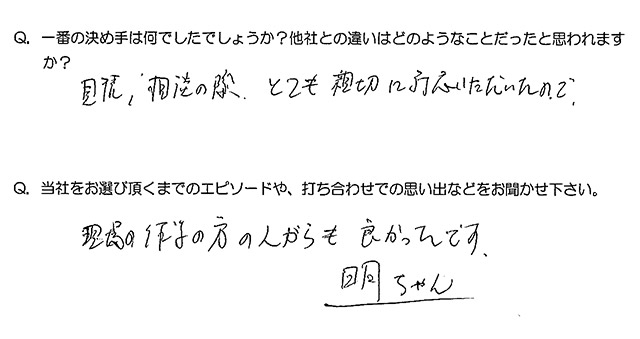 Q. 一番の決め手は何でしたでしょうか？他社との違いはどのようなことだったと思われます
か？
見積，相談の際、とても親切に対応いただいたので、
Q. 当社をお選び頂くまでのエピソードや、打ち合わせでの思い出などをお聞かせ下さい。
現場の作業の方の人がらも良かったです、
明ちゃん